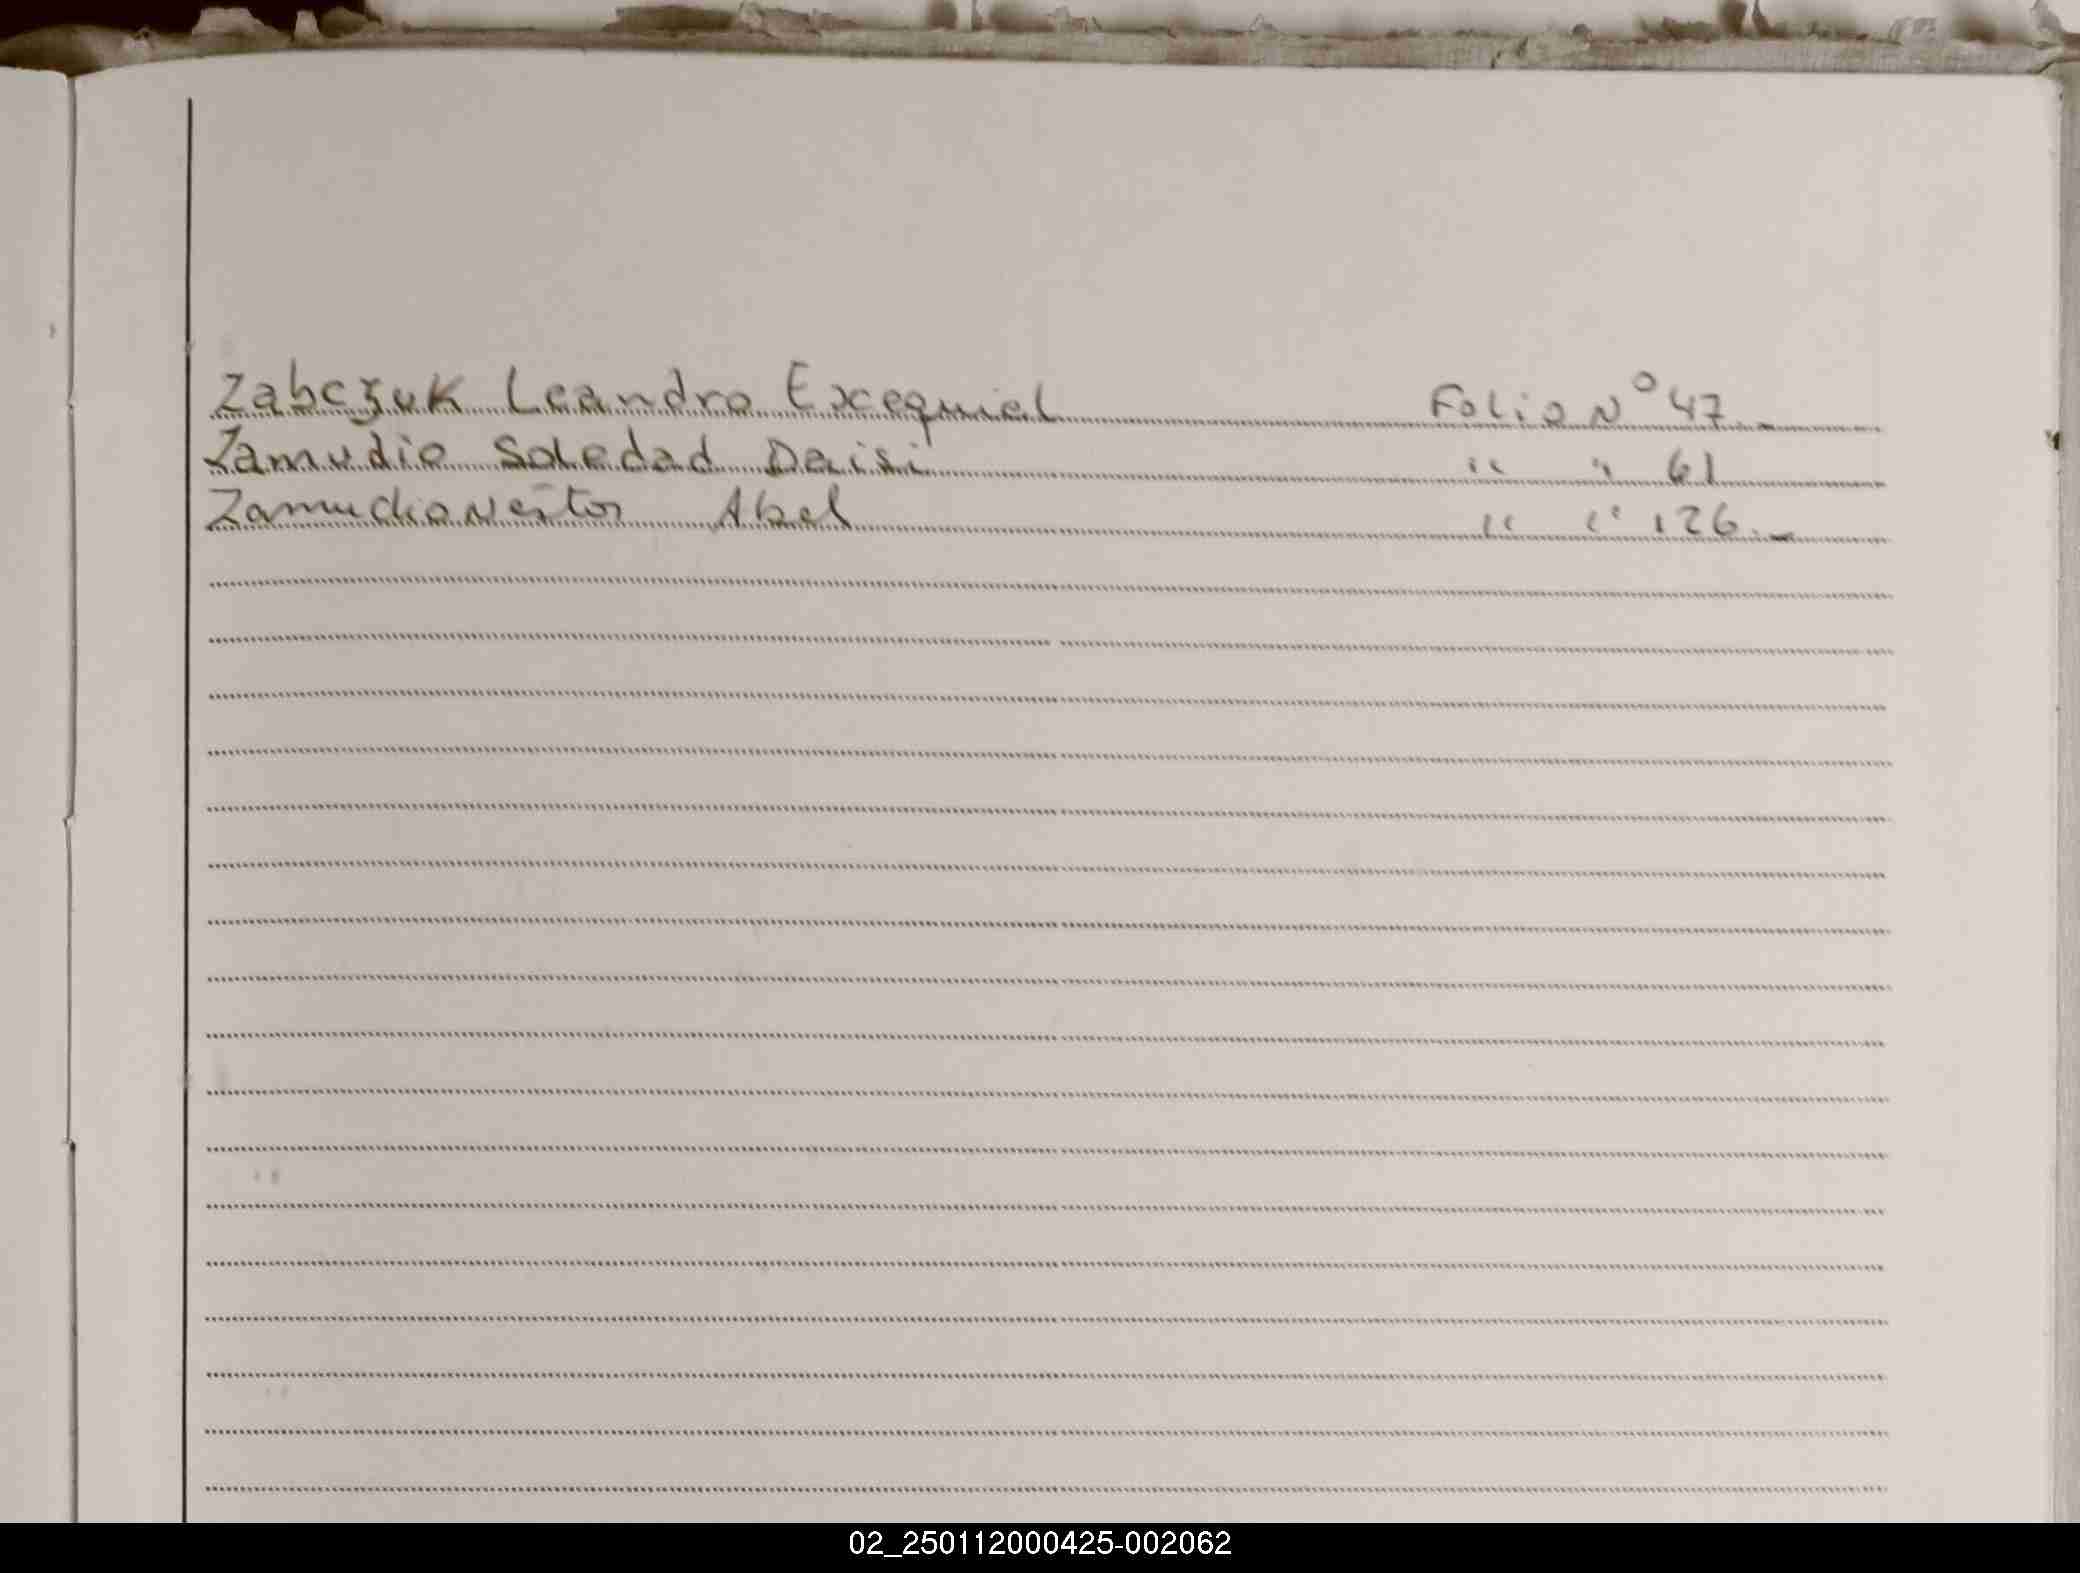 Zabczuk Leandro Exequiel Folio Nº 47._
Zamudio Soledad Daisi " " 61
Zamudio Nestor Abel " " 126._
02_250112000425-002062